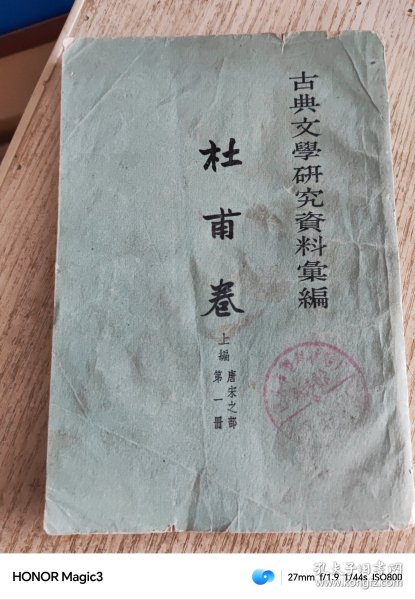 古典文學研究資料彙編
杜甫卷
上編 唐宋之部
第一冊
HONOR Magic3
27mm f/1.9 1/44s ISO800
孔夫子旧书网
www.kongfz.com